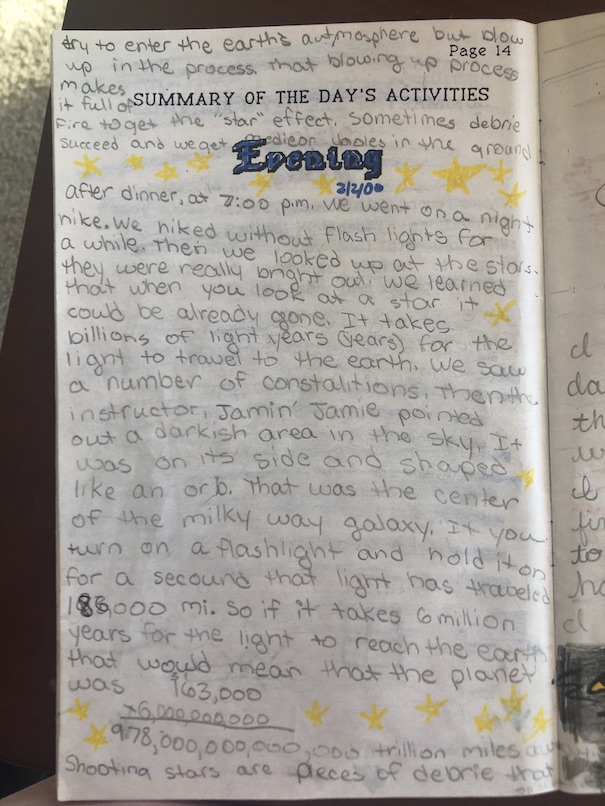 try to enter the earth's autmosphere but blow
Page 14
up in the process. That blowing up process
makes
it full of
SUMMARY OF THE DAY'S ACTIVITIES
Fire to get the "star" effect. Sometimes debrie
succeed and we get holes in the ground
Evening
2/2/00
after dinner, at 7:00 p.m. we went on a night
hike. We hiked without flash lights for
a while. Then we looked up at the stars.
they were really bright out. we learned
that when you look at a star it
could be already gone. It takes
billions of light years (years) for the
light to travel to the earth. We saw
a number of constalitions. Then the
instructor, Jamin' Jamie pointed
out a darkish area in the sky. It
was on its side and shaped
like an orb. That was the center
of the milky way galaxy. If you
turn on a flashlight and hold it on
for a secound that light has traveled
186,000 mi. So if it takes 6 million
years for the light to reach the earth
that would mean that the planet
was 163,000
x6,000,000,000
978,000,000,000,000 trillion miles
Shooting stars are pieces of debrie that
d
da
th
w
to
ha
d